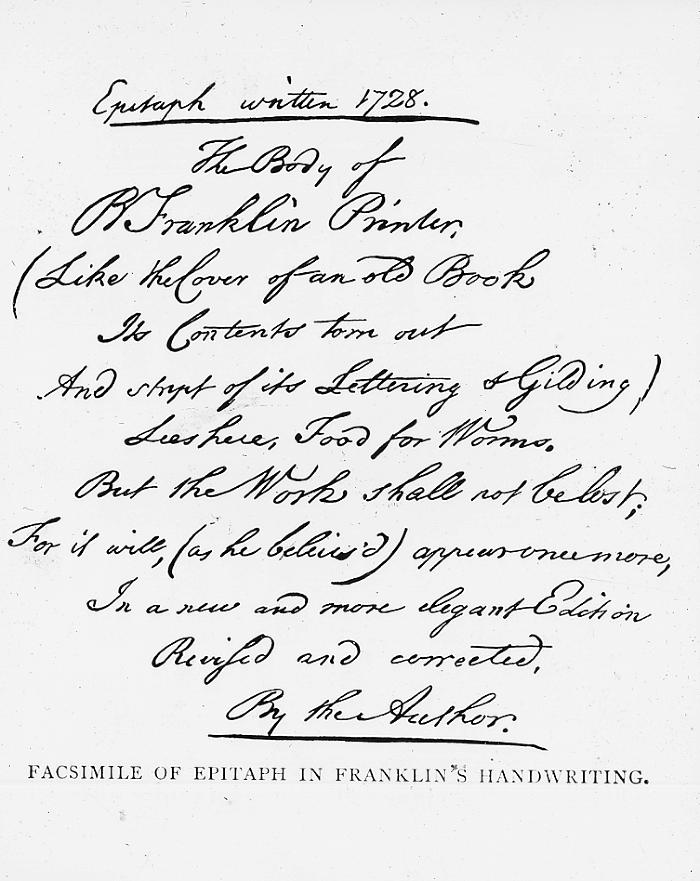 Epitaph written 1728.
The Body of
B Franklin Printer,
(Like the Cover of an old Book
Its Contents torn out
And stript of its Lettering & Gilding)
Lies here, Food for Worms.
But the Work shall not be lost;
For it will, (as he believ'd) appear once more,
In a new and more elegant Edition
Revised and corrected,
By the Author.
FACSIMILE OF EPITAPH IN FRANKLIN'S HANDWRITING.